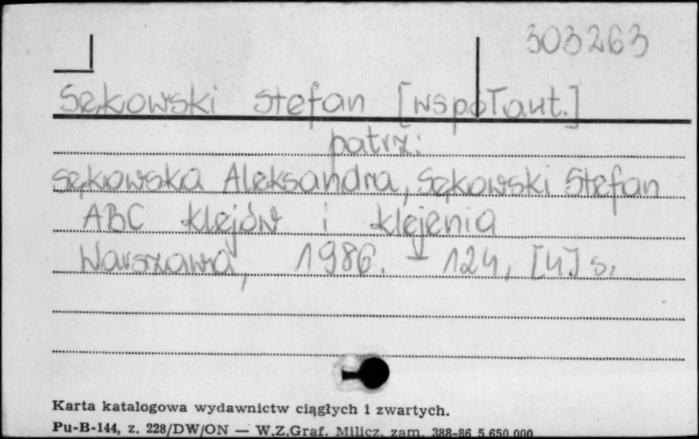 303263
Sękowski Stefan [współaut.]
patrz:
Sękowska Aleksandra, Sękowski Stefan
ABC klejów i klejenia
Warszawa, 1986. - 124, [4] s.
Karta katalogowa wydawnictw ciągłych i zwartych.
Pu-B-144, z. 228/DW/ON — W.Z.Graf. Milicz, zam. 388-86 5.650.000